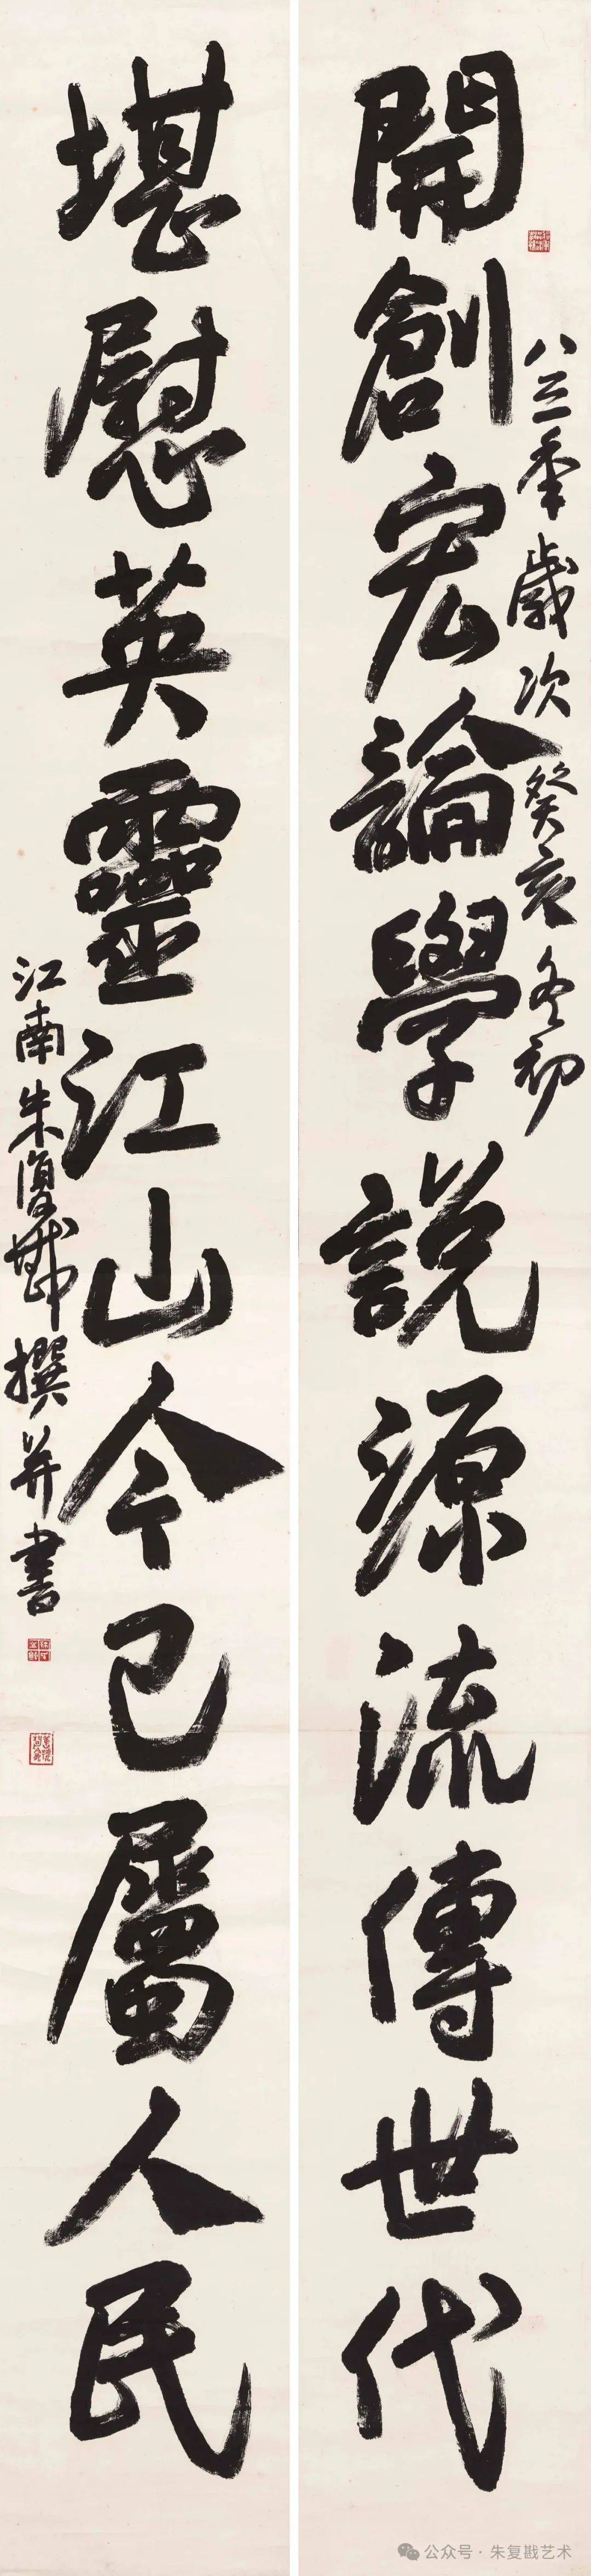 開創宏論學說源流傳世代
八三年歲次癸亥冬初
堪慰英靈江山今已屬人民
江南朱復戡撰并書
公众号·朱复戡艺术